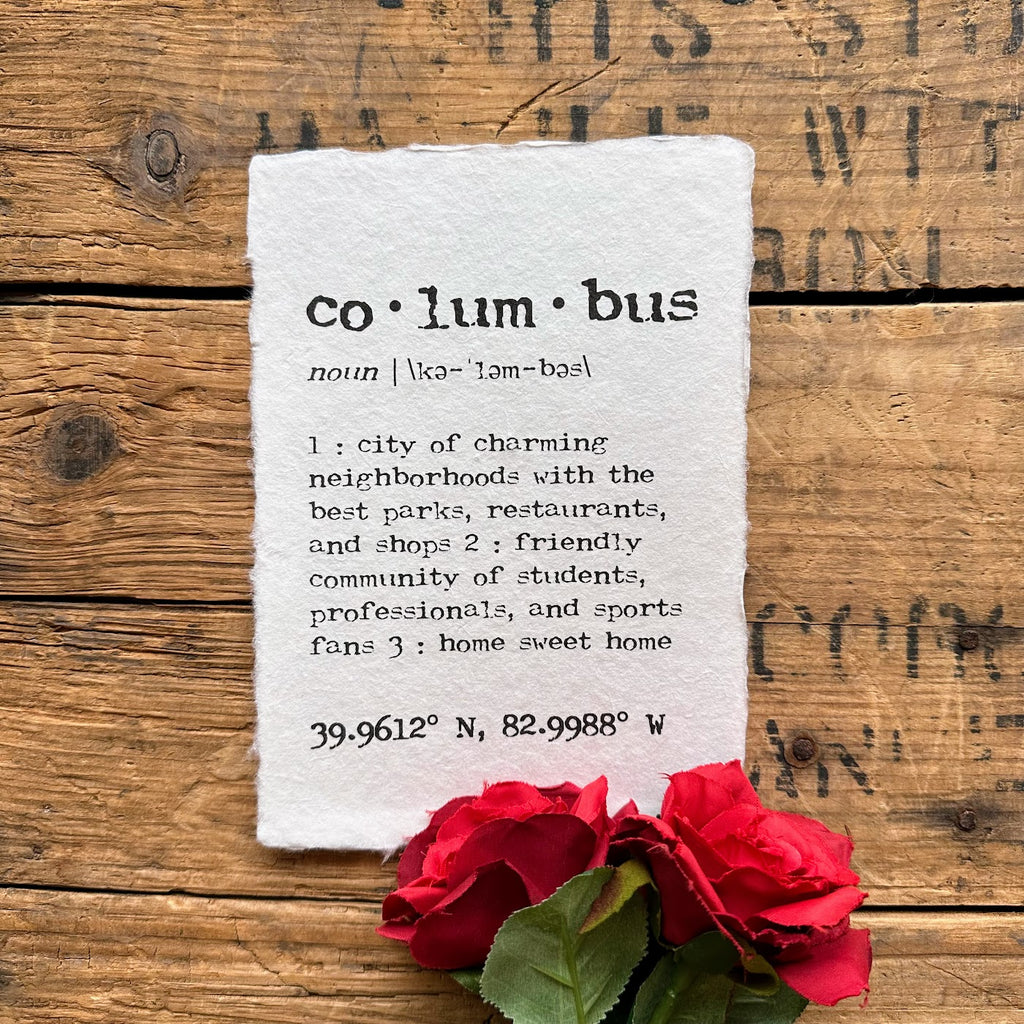 co·lum·bus
noun | \kə-ˈləm-bəs\
1 : city of charming
neighborhoods with the
best parks, restaurants,
and shops 2 : friendly
community of students,
professionals, and sports
fans 3 : home sweet home
39.9612° N, 82.9988° W